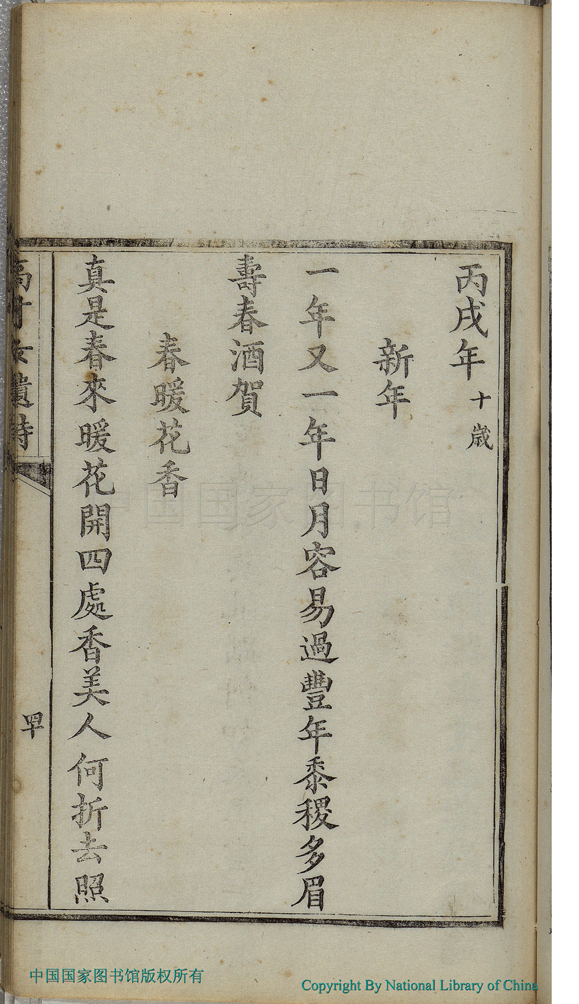 丙戌年 十歲
新年
一年又一年日月容易過豐年黍稷多眉
壽春酒賀
春暖花香
真是春來暖花開四處香美人何折去照
遺詩
中国国家图书馆
中国国家图书馆版权所有
Copyright By National Library of China